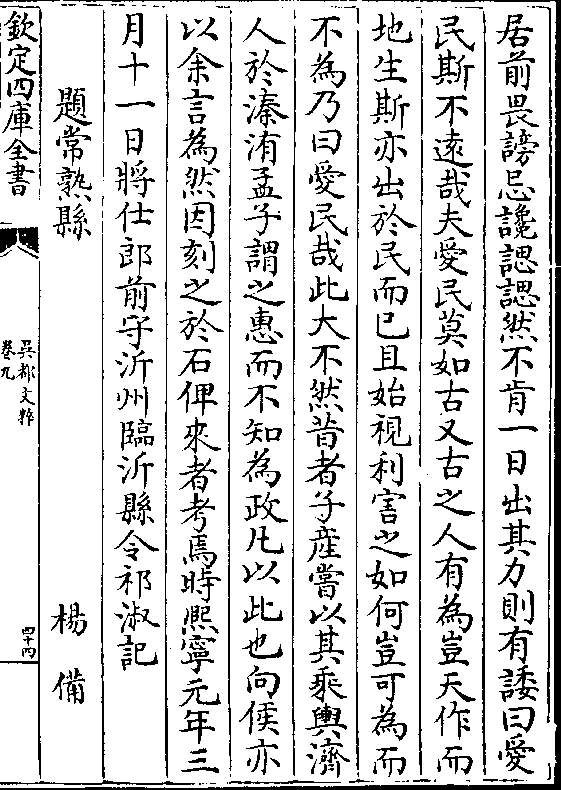 居前畏謗忌讒諰諰然不肯一日出其力則有諉曰愛
民斯不遠哉夫愛民莫如古又古之人有為豈天作而
地生斯亦出於民而已且始視利害之如何豈可為而
不為乃曰愛民哉此大不然昔者子產嘗以其乘輿濟
人於溱洧孟子謂之惠而不知為政凡以此也向侯亦
以余言為然因刻之於石俾來者考焉時熈寧元年三
月十一日將仕郎前守沂州臨沂縣令祁淑記
題常熟縣　楊備
欽定四庫全書
吳都文粹
卷九
四十四